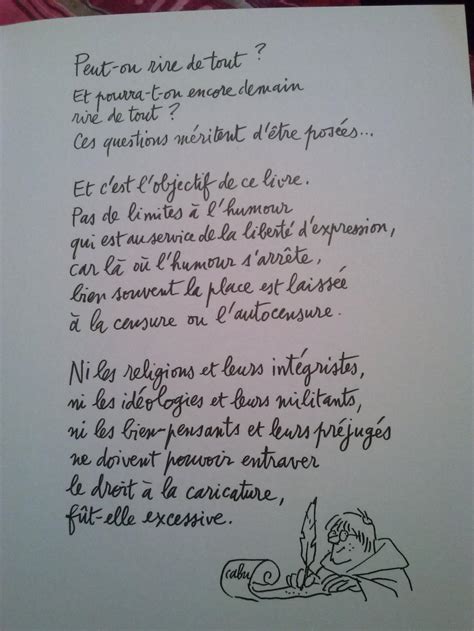 Peut-on rire de tout ?
Et pourra-t-on encore demain
rire de tout ?
Ces questions méritent d'être posées...
Et c'est l'objectif de ce livre.
Pas de limites à l'humour
qui est au service de la liberté d'expression,
car là où l'humour s'arrête,
bien souvent la place est laissée
à la censure ou l'autocensure.
Ni les religions et leurs intégristes,
ni les idéologies et leurs militants,
ni les bien-pensants et leurs préjugés
ne doivent pouvoir entraver
le droit à la caricature,
fût-elle excessive.
cabu